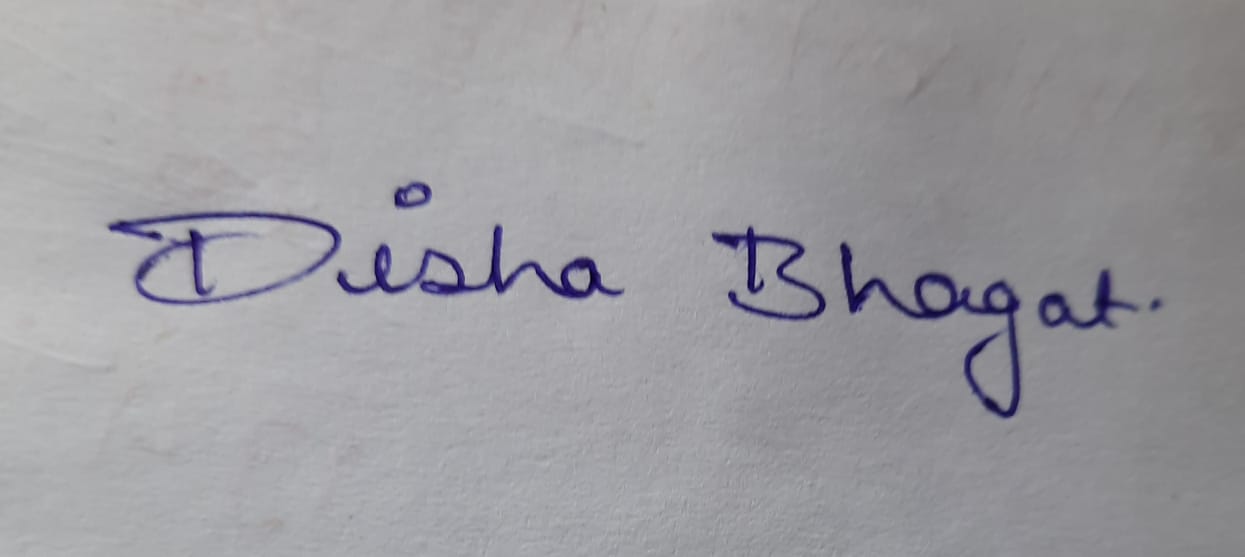 Disha Bhagat.